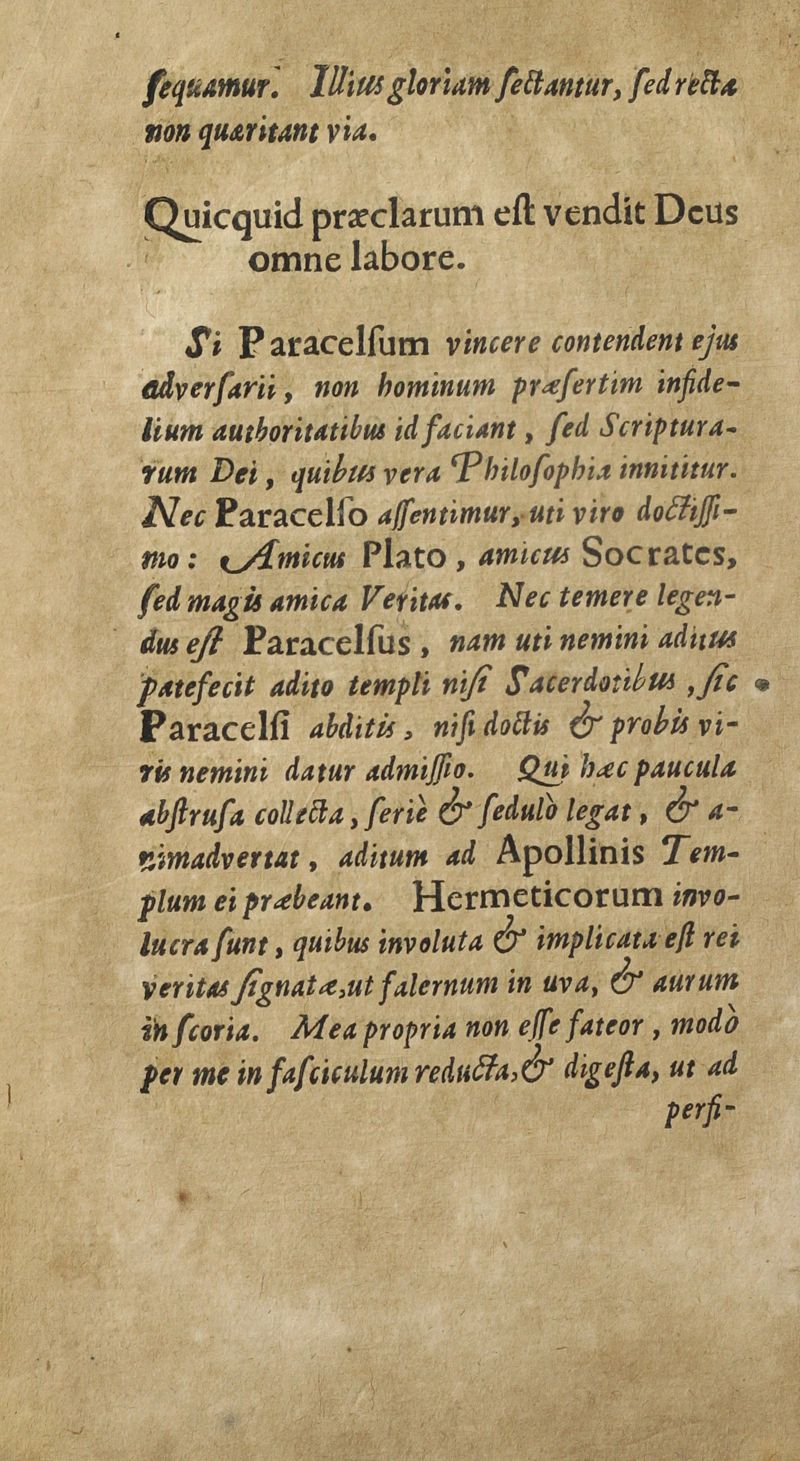 ſequamur. Illius gloriam ſectantur, ſed recta
non quæritant via.
Quicquid præclarum eſt vendit Deus
omne labore.
Si Paracelſum vincere contendent ejus
adverſarii, non hominum præſertim infide-
lium authoritatibus id faciant, ſed Scriptura-
rum Dei, quibus vera Philoſophia innititur.
Nec Paracelſo aſſentimur, uti viro doctiſſi-
mo: Amicus Plato, amicus Socrates,
ſed magis amica Veritas. Nec temere legen-
dus eſt Paracelſus, nam uti nemini aditus
patefecit adito templi niſi Sacerdotibus, ſic
Paracelſi abditis, niſi doctis & probis vi-
ris nemini datur admiſſio. Qui hæc paucula
abſtruſa collecta, ſeriè & ſedulò legat, & a-
nimadvertat, aditum ad Apollinis Tem-
plum ei præbeant. Hermeticorum invo-
lucra ſunt, quibus involuta & implicata eſt rei
veritas ſignatæ, ut falernum in uva, & aurum
in ſcoria. Mea propria non eſſe fateor, modò
per me in faſciculum reducta, & digeſta, ut ad
perfi-